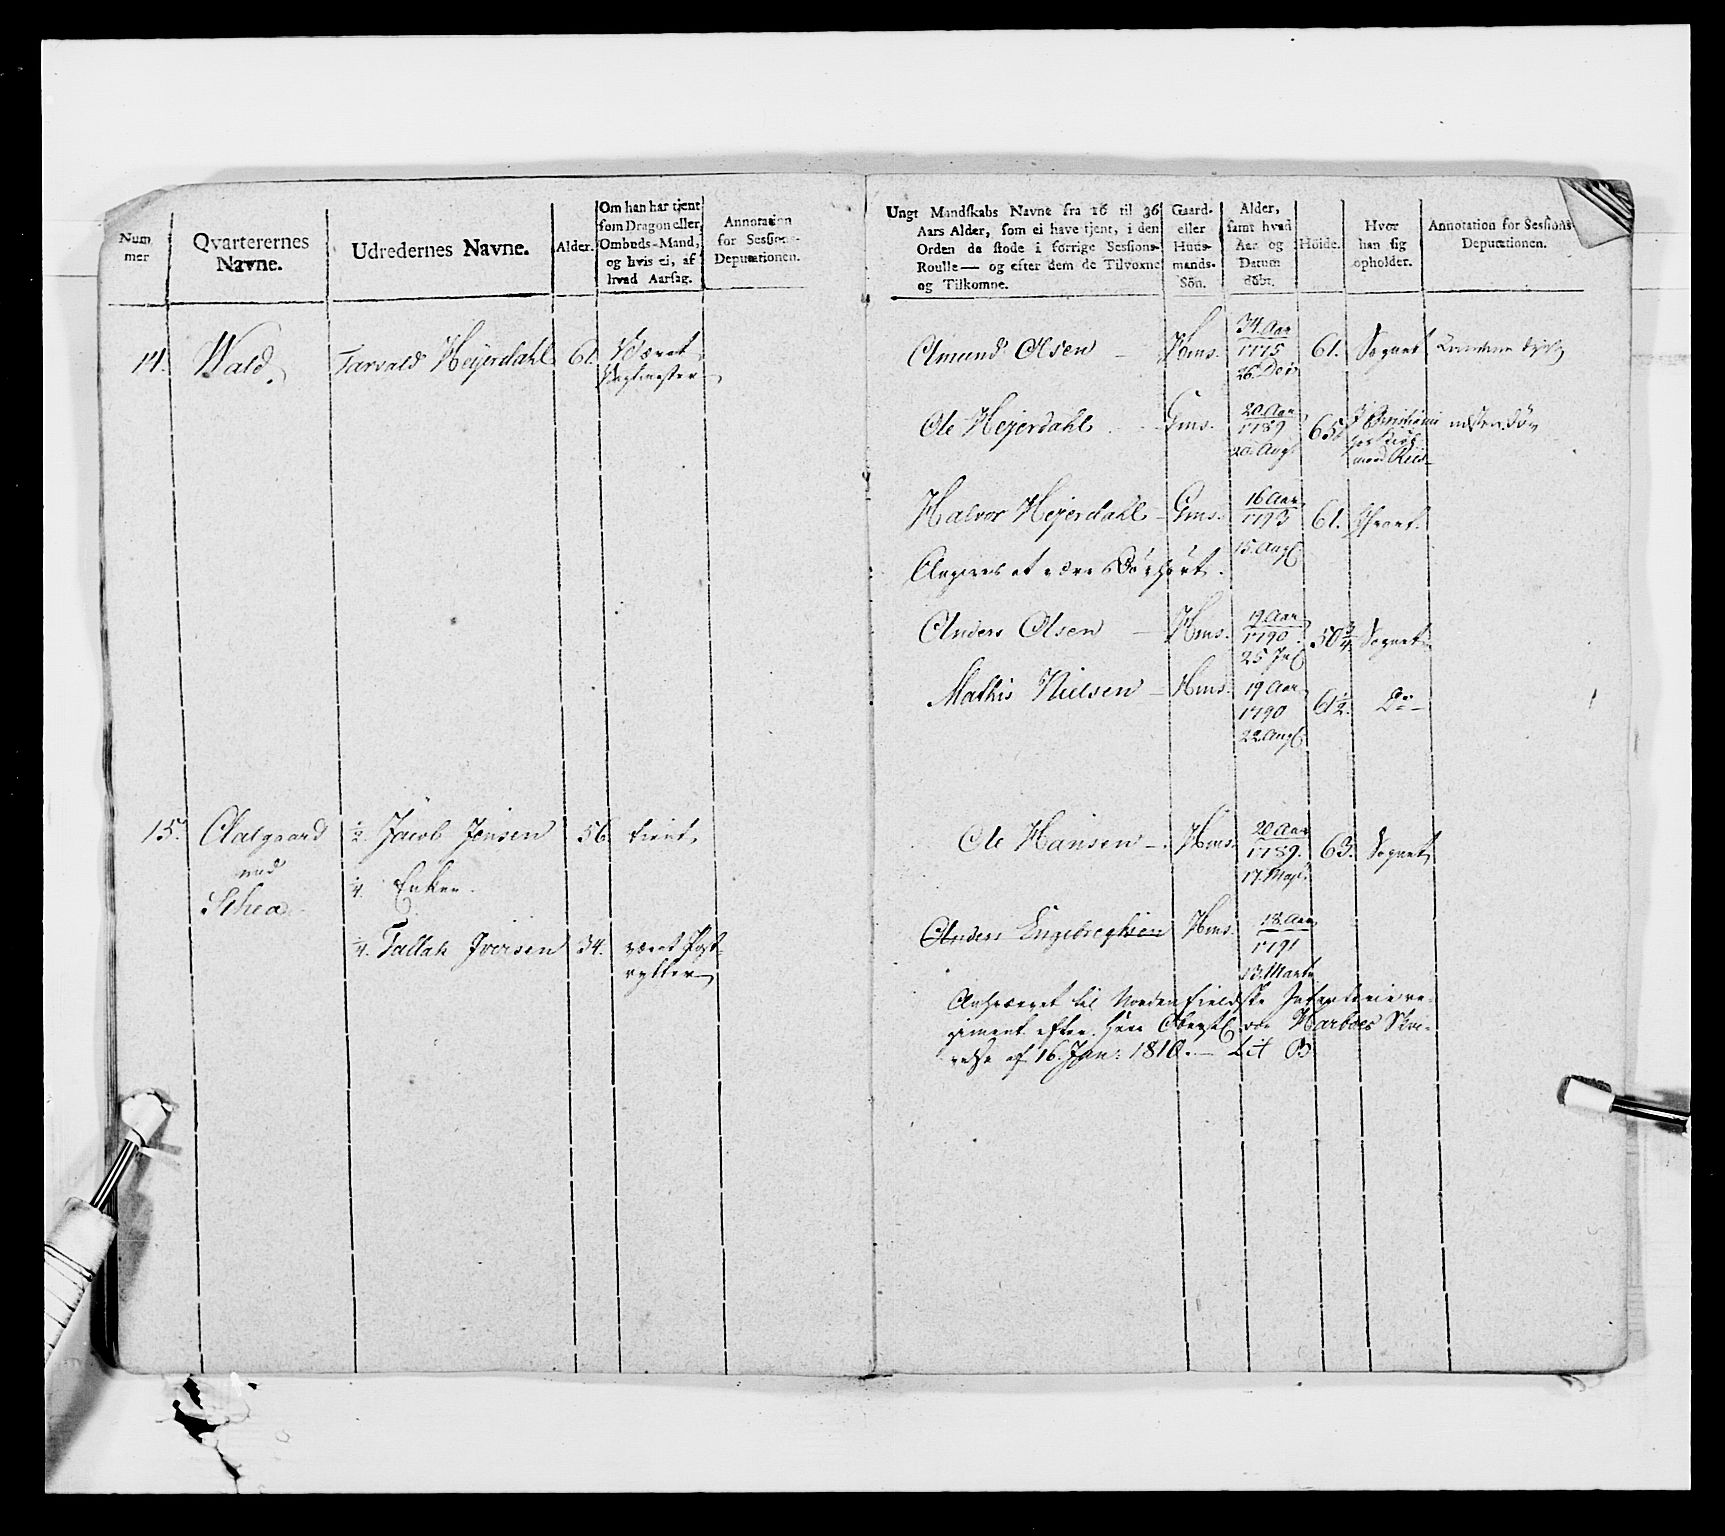 Num
mer
Qvarterernes
Navne.
Udredernes Navne.
Alder.
Om han har tjent
som Dragon eller
Ombuds-Mand,
og hvis ei, af
hvad Aarsag.
Annotation
for Sessions-
Deputationen.
14. Wald. Tarvald Heyerdahl 61. Været
Vagtmester
15. Aalgaard
med
Schea
1/2. Jacob Jensen 56. tient,
1/4. Enken.
1/4. Tallak Iversen 34. været Post-
rytter
Ungt Mandskabs Navne fra 16 til 36
Aars Alder, som ei have tjent, i den
Orden de stode i forrige Sessions-
Roulle— og efter dem de Tilvoxne
og Tilkomne.
Gaard-
eller
Huus-
mands-
Sön.
Alder,
samt hvad
Aar og
Datum
döbt.
Höide.
Hvor
han sig
opholder.
Annotation for Sessions-
Deputationen.
Amund Olsen — Hms. 34. Aar
1775
26. Dec. 61. Sognet
Ole Heyerdahl Gms. 20. Aar
1789
20. Aug. 65.
med Reis
Halvor Heyerdahl — Gms. 16 Aar
1793
15. Aug. 61.
Angives at være
Anders Olsen — Hms. 19 Aar
1790.
25 50 3/4. Sognet
Mathis Nielsen — Hms. 19 Aar
1790
22. Aug. 61 1/2. Do —
Ole Hansen — Hms. 20 Aar
1789.
17. Maji. 63. Sognet
Anders Engebregtsen Hms. 18. Aar
1791
13. Marts
til Nordenfieldske Infanterie re-
giment efter Herr Oberst von Harboes Skri-
velse af 16. Jan: 1810. — Lit B